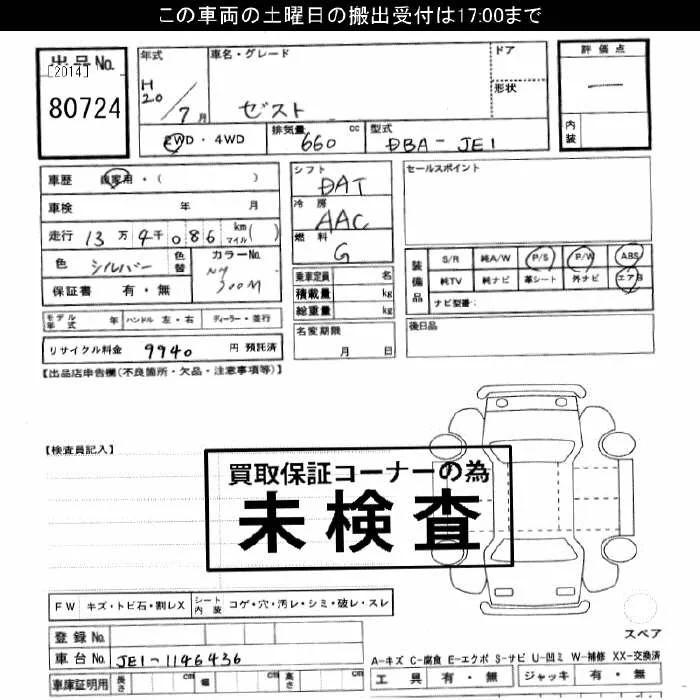 この車両の土曜日の搬出受付は17:00まで
出品No.
[2014]
80724
年式
H20/7月
車名・グレード
ゼスト
ドア
形状
評価点
―
内装
2WD・4WD
排気量 660 cc
型式 DBA-JE1
車歴 自家用・( )
車検 年 月
走行 13万4千086 km マイル( )
色 シルバー 色替
カラーNo. NH700M
保証書 有・無
シフト DAT
冷房 AAC
燃料 G
乗車定員 名
積載量 kg
総重量 kg
名変期限
月 日
セールスポイント
装備品
S/R 純A/W P/S P/W ABS
純TV 純ナビ 革シート 外ナビ エアB
ナビ型番:
後日品
モデル年式 年 ハンドル 左・右 ディーラー・並行
リサイクル料金 9940 円 預託済
【出品店申告欄(不良箇所・欠品・注意事項等)】
【検査員記入】
買取保証コーナーの為
未検査
FW キズ・トビ石・割レX シート内装 コゲ・穴・汚レ・シミ・破レ・スレ
登録No.
車台No. JE1-1146436
車庫証明用 長さ cm 幅 cm 高さ cm
スペア
A-キズ C-腐食 E-エクボ S-サビ U-凹ミ W-補修 XX-交換済
工具 有・無 ジャッキ 有・無